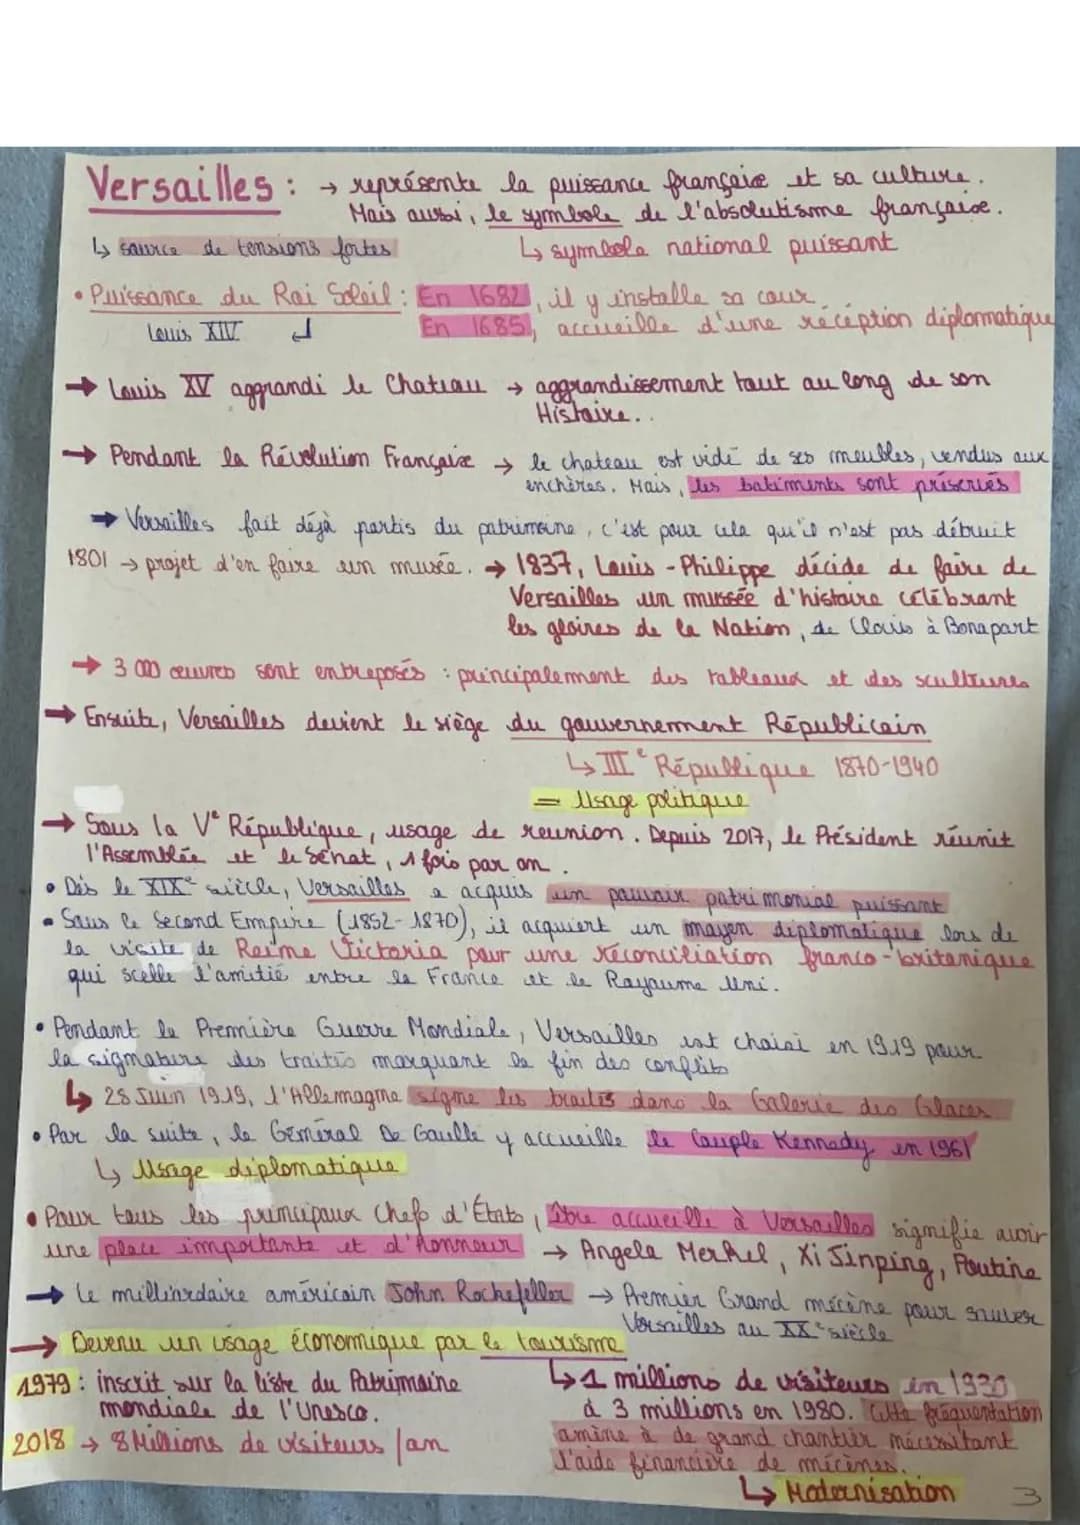 Versailles : → représente la puissance française et sa culture.
Mais aussi, le symbole de l'absolutisme française.
↳ source de tensions fortes
↳ symbole national puissant
• Puissance du Roi Soleil : En 1682, il y installe sa cour.
Louis XIV ↲ En 1685, accueille d'une réception diplomatique
→ Louis XV aggrandi le Chateau → aggrandissement tout au long de son
Histoire..
→ Pendant la Révolution Française → le chateau est vidé de ses meubles, vendus aux
enchères. Mais, les batiments sont préservés
→ Versailles fait déjà partis du patrimoine, c'est pour cela qu'il n'est pas détruit
1801 → projet d'en faire un musée. → 1837, Louis-Philippe décide de faire de
Versailles un mussée d'histoire célébrant
les gloires de la Nation, de Clovis à Bonapart
→ 3 000 œuvres sont entreposés : principalement des tableaux et des scultures
→ Ensuite, Versailles devient le siège du gouvernement Républicain
↳ IIIe République 1870-1940
= Usage politique
→ Sous la Ve République, usage de reunion. Depuis 2017, le Président réunit
l'Assemblée et le Sénat, 1 fois par an.
• Dès le XIXe siècle, Versailles a acquis un pouvoir patrimonial puissant
• Sous le Second Empire (1852-1870), il acquiert un moyen diplomatique lors de
la visite de Reime Victoria pour une réconciliation franco-britanique
qui scelle l'amitié entre la France et le Royaume Uni.
• Pendant la Première Guerre Mondiale, Versailles est choisi en 1919 pour
la signature des traités marquant la fin des conflits
↳ 28 Juin 1919, l'Allemagne signe les traités dans la Galerie des Glaces
• Par la suite, le Général De Gaulle y accueille le Couple Kennedy en 1961
↳ Usage diplomatique
• Pour tous les principaux Chefs d'États, être accueille à Versailles signifie avoir
une place importante et d'honneur → Angela Merkel, Xi Jinping, Poutine
→ Le milliardaire américain John Rockefeller → Premier Grand mécène pour sauver
Versailles au XXe siècle
→ Devenu un usage économique par le tourisme
1979 : inscrit sur la liste du Patrimoine
mondiale de l'Unesco.
↳ 1 millions de visiteurs en 1930
à 3 millions en 1980. Cette fréquentation
amène à de grand chantier nécessitant
l'aide financière de mécènes.
2018 → 8 Millions de visiteurs / an
↳ Modernisation
3